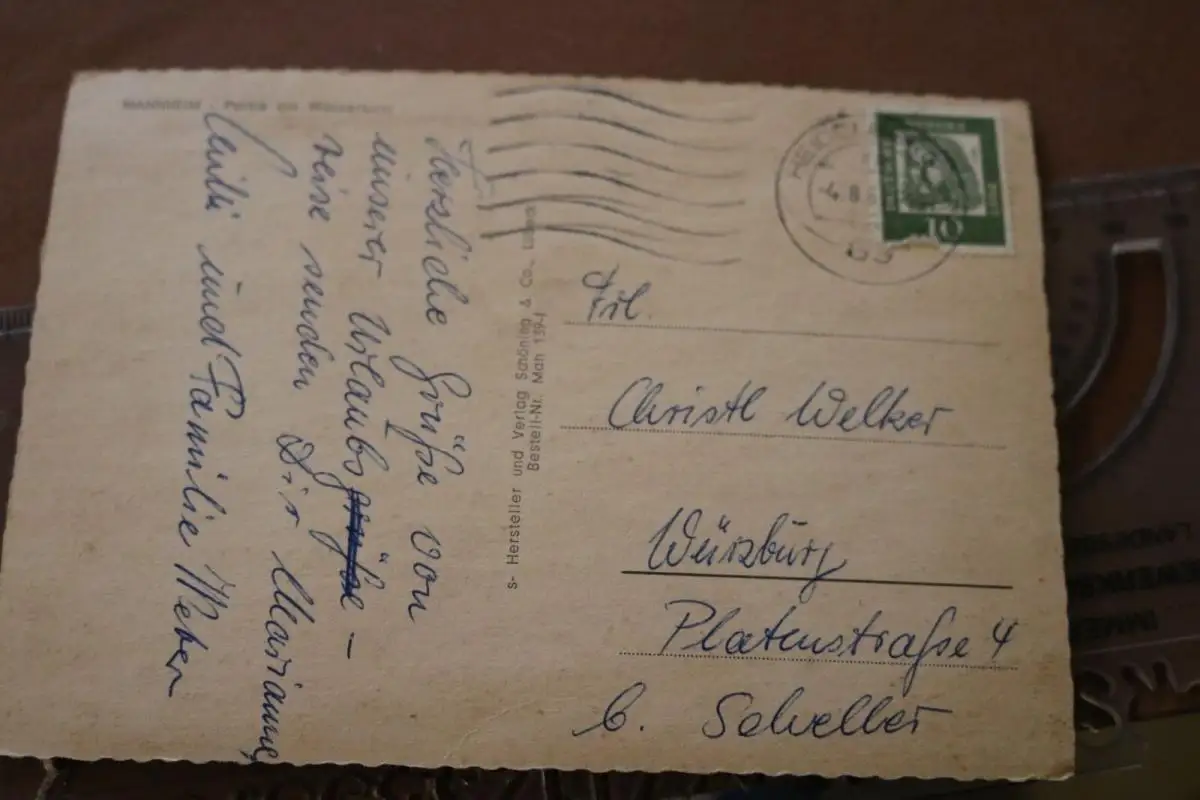 MANNHEIM - Partie am Wasserturm
Herzliche Grüße von
unserer Urlaubsgrüße -
reise senden Dir Marianne,
und Familie Weber
s- Hersteller und Verlag Schöning & Co.,
Bestell-Nr. Man 139
4.8.
10
Frl.
Christl Welker
Würzburg
Platenstraße 4
b. Scheller